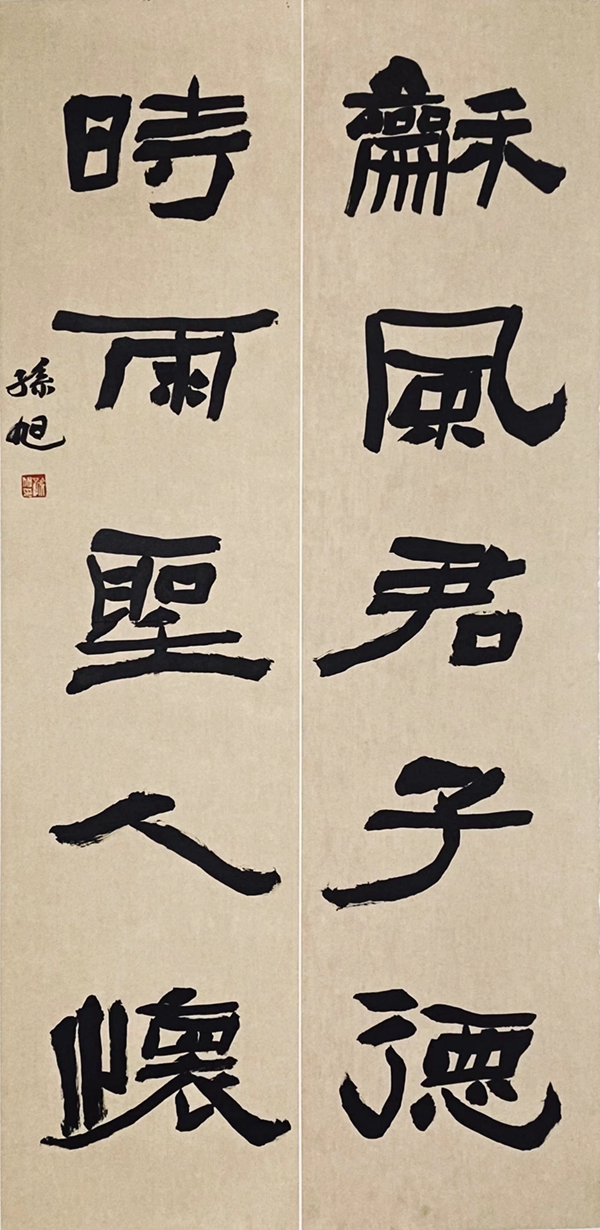 龢風君子德
時雨聖人懷
孫旭